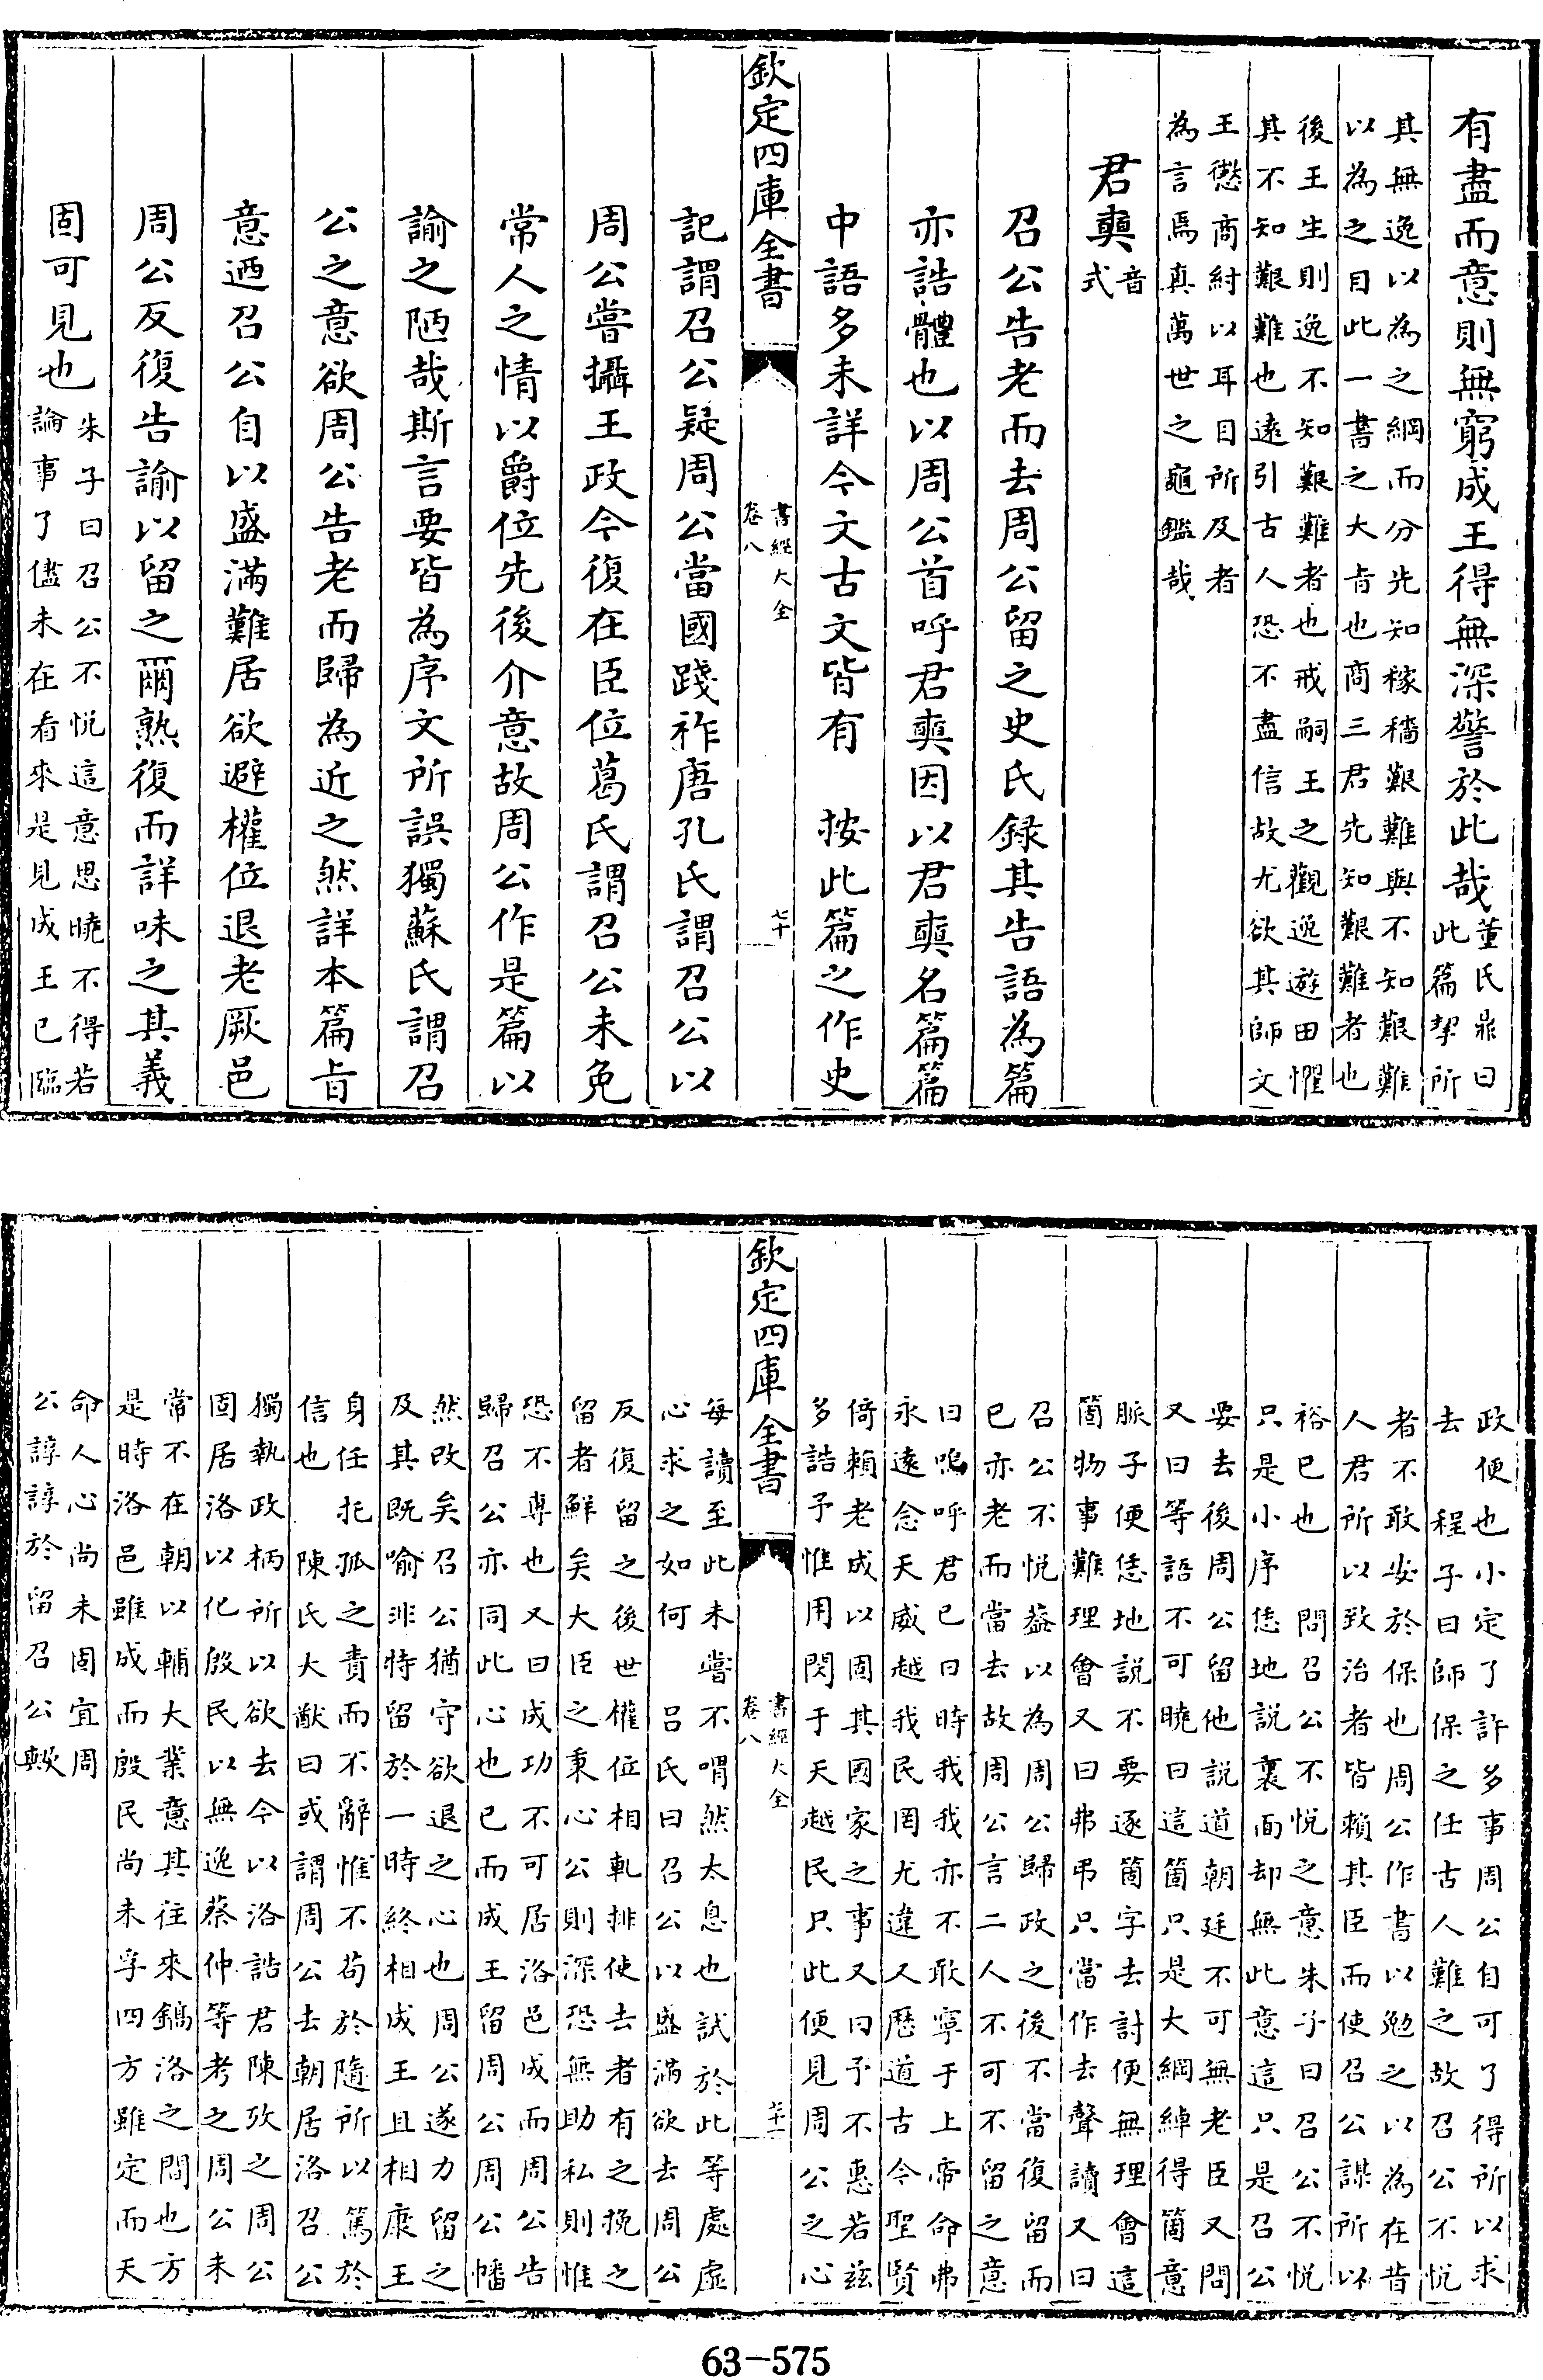 有盡而意則無窮成王得無深警於此哉董氏鼎曰
此篇挈所
其無逸以為之綱而分先知稼穡艱難與不知艱難
以為之目此一書之大㫖也商三君先知艱難者也
後王生則逸不知艱難者也戒嗣王之觀逸遊田懼
其不知艱難也遠引古人恐不盡信故尤欲其師文
王懲商紂以耳目所及者
為言焉真萬世之龜鑑哉
君奭音
式
召公告老而去周公留之史氏録其告語為篇
亦誥體也以周公首呼君奭因以君奭名篇篇
中語多未詳今文古文皆有　按此篇之作史
欽定四庫全書
書經大全
卷八
七十
記謂召公疑周公當國踐祚唐孔氏謂召公以
周公嘗攝王政今復在臣位葛氏謂召公未免
常人之情以爵位先後介意故周公作是篇以
諭之陋哉斯言要皆為序文所誤獨蘇氏謂召
公之意欲周公告老而歸為近之然詳本篇㫖
意迺召公自以盛滿難居欲避權位退老厥邑
周公反復告諭以留之爾熟復而詳味之其義
固可見也朱子曰召公不悦這意思曉不得若
論事了儘未在看來是見成王已臨
政便也小定了許多事周公自可了得所以求
去　程子曰師保之任古人難之故召公不悦
者不敢安於保也周公作書以勉之以為在昔
人君所以致治者皆賴其臣而使召公謀所以
裕已也　問召公不悦之意朱子曰召公不悦
只是小序恁地說裏面却無此意這只是召公
要去後周公留他說道朝廷不可無老臣又問
又曰等語不可曉曰這箇只是大綱綽得箇意
脈子便恁地說不要逐箇字去討便無理會這
箇物事難理會又曰弗弔只當作去聲讀又曰
召公不悦葢以為周公歸政之後不當復留而
已亦老而當去故周公言二人不可不留之意
曰嗚呼君已曰時我我亦不敢寧于上帝命弗
永遠念天威越我民罔尤違又歷道古今聖賢
倚賴老成以固其國家之事又曰予不惠若兹
多誥予惟用閔于天越民只此便見周公之心
欽定四庫全書
書經大全
卷八
七十一
每讀至此未嘗不喟然太息也試於此等處虛
心求之如何　吕氏曰召公以盛滿欲去周公
反復留之後世權位相軋排使去者有之挽之
留者鮮矣大臣之秉心公則深恐無助私則惟
恐不專也又曰成功不可居洛邑成而周公告
歸召公亦同此心也已而成王留周公周公幡
然改矣召公猶守欲退之心也周公遂力留之
及其既喻非特留於一時終相成王且相康王
身任托孤之責而不辭惟不苟於隨所以篤於
信也　陳氏大猷曰或謂周公去朝居洛召公
獨執政柄所以欲去今以洛誥君陳攷之周公
固居洛以化殷民以無逸蔡仲等考之周公未
常不在朝以輔大業意其往來鎬洛之間也方
是時洛邑雖成而殷民尚未孚四方雖定而天
命人心尚未固宜周
公諄諄於留召公歟
63—575